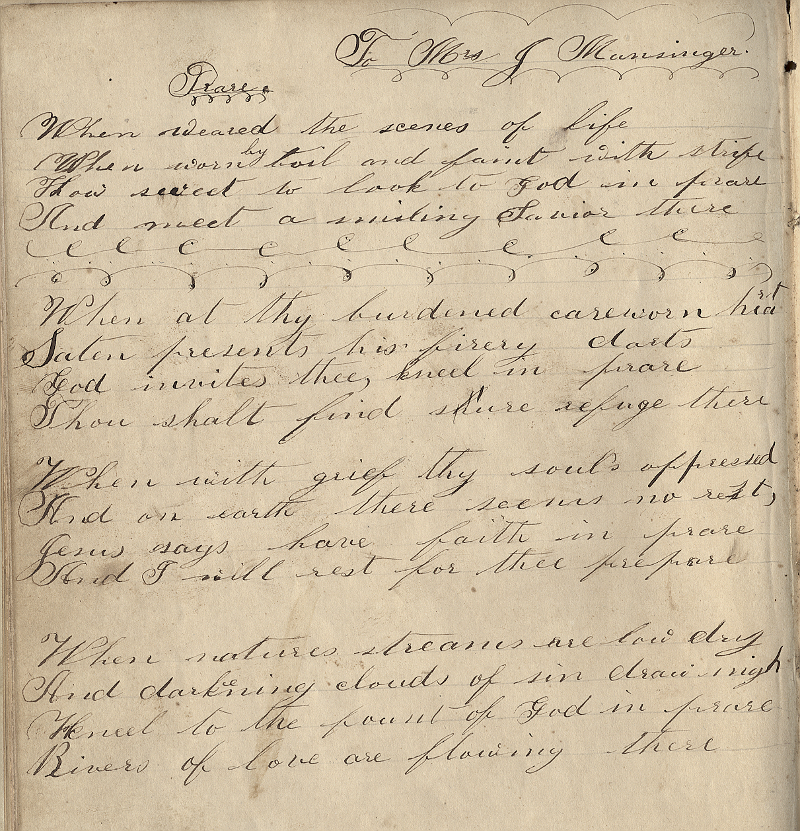 To Mrs J Mansinger.
Prare.
When weared the scenes of life
When worn by toil and faint with strife
How sweet to look to God in prare
And meet a smiling Savior there
When at thy burdened careworn hart
Saten presents his firery darts
God invites thee, kneel in prare
Thou shalt find sure refuge there
When with grief thy soul's oppressed
And on earth there seems no rest,
Jesus says have faith in prare
And I will rest for thee prepare
When natures streams are low dry
And darkning clouds of sin draw nigh
Kneel to the fount of God in prare
Rivers of love are flowing there